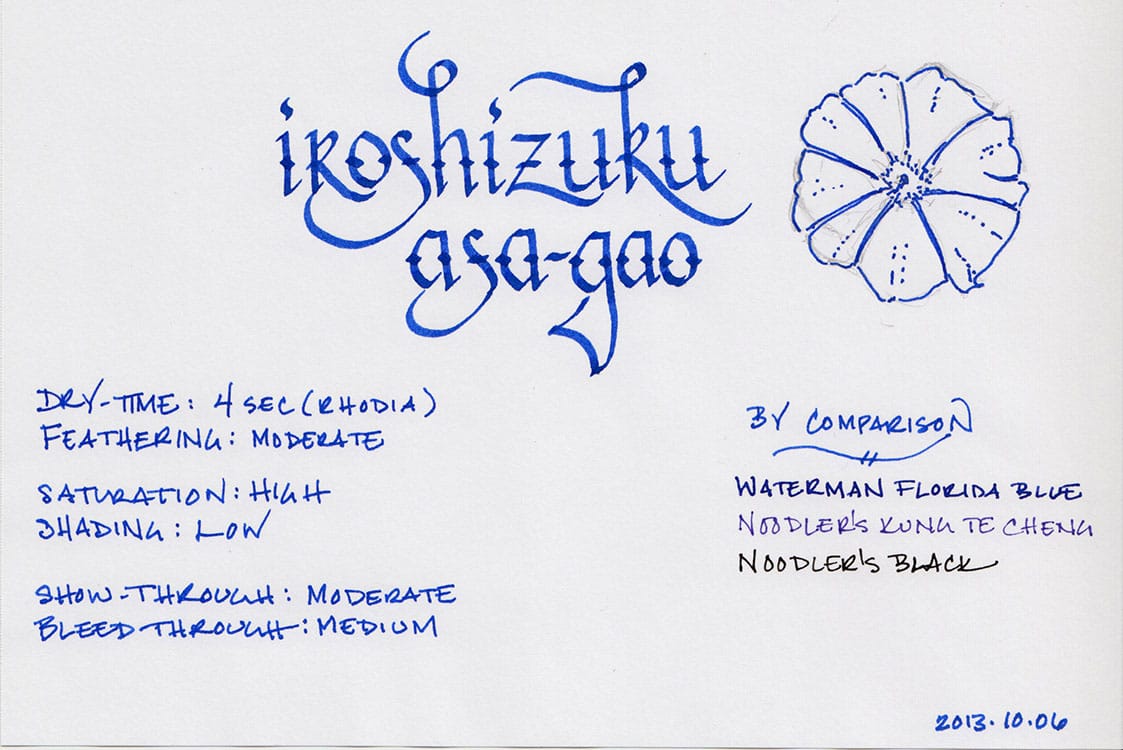 iroshizuku
asa-gao
DRY-TIME: 4 SEC (RHODIA)
FEATHERING: MODERATE
SATURATION: HIGH
SHADING: LOW
SHOW-THROUGH: MODERATE
BLEED-THROUGH: MEDIUM
BY COMPARISON
WATERMAN FLORIDA BLUE
NOODLER'S KUNG TE CHENG
NOODLER'S BLACK
2013.10.06